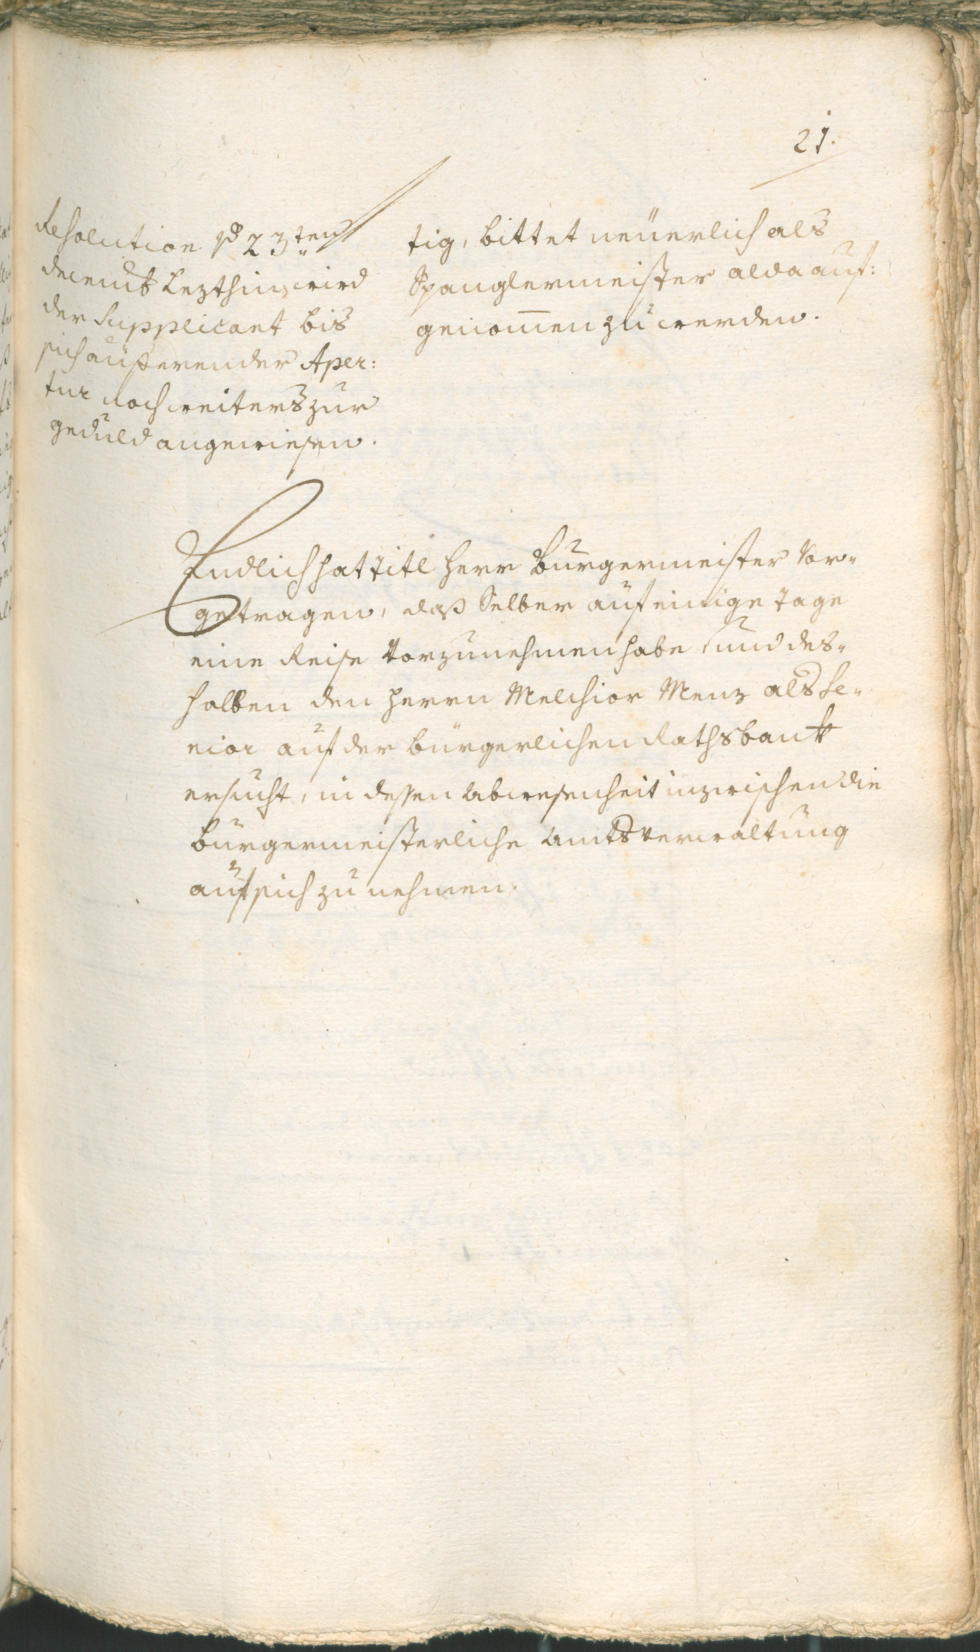 21.
Resolution de 23ten
Decemb: Lezthin wird
der Supplicant bis
sich äußerender Aper:
tur noch weiters zur
geduld angewiesen.
tig, bittet neüerlich als
Spanglermeister alda auf:
genom̅en zu werden.
Endlich hat Titl Herr Burgermeister Vor-
getragen, daß Selber auf einige Tage
eine Reise Vorzunehmen habe, und des-
halben den Herrn Melchior Menz als Se-
nior auf der bürgerlichen Rathsbank
ersucht, in dessen Abwesenheit inzwischen die
Bürgermeisterliche Amts Verwaltung
auf sich zu nehmen.